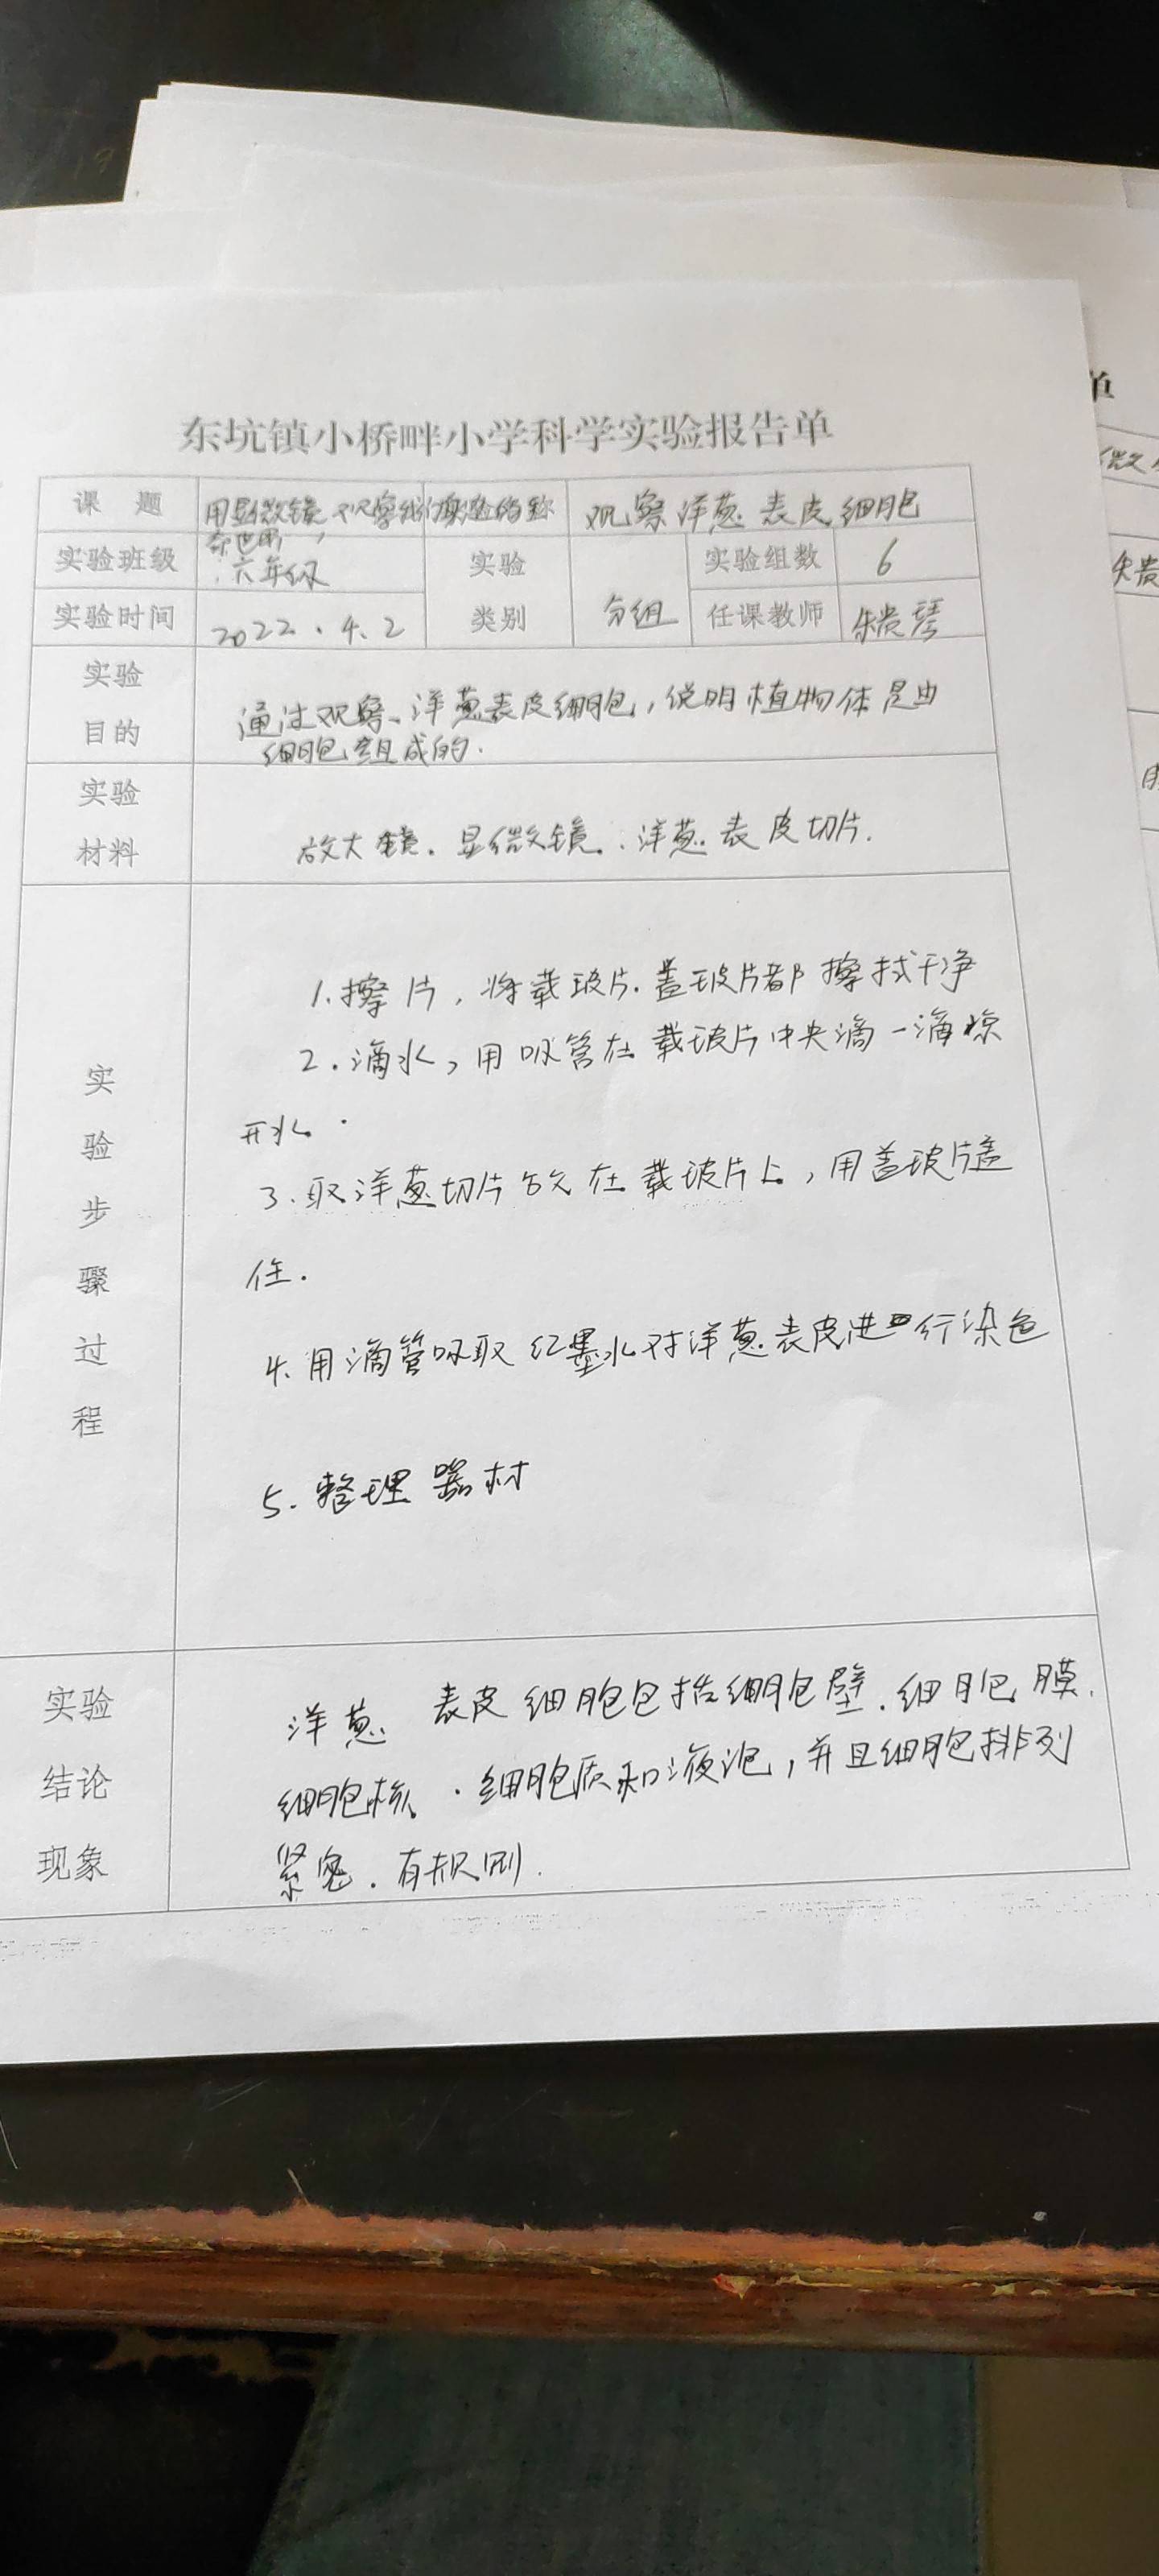 东坑镇小桥畔小学科学实验报告单
课 题 用显微镜观察 实验名称 观察洋葱表皮细胞
实验班级 六年级 实验 实验组数 6
实验时间 2022.4.2 类别 分组 任课教师 朱贵琴
实验
目的
通过观察、洋葱表皮细胞,说明植物体是由
细胞组成的.
实验
材料
放大镜.显微镜.洋葱表皮切片.
实验步骤过程
1.擦片,将载玻片.盖玻片都擦拭干净
2.滴水,用吸管在载玻片中央滴一滴凉
开水.
3.取洋葱切片放在载玻片上,用盖玻片盖
住.
4.用滴管吸取红墨水对洋葱表皮进行染色
5.整理器材
实验
结论
现象
洋葱表皮细胞包括细胞壁.细胞膜.
细胞核.细胞质和液泡,并且细胞排列
紧密.有规则.
单